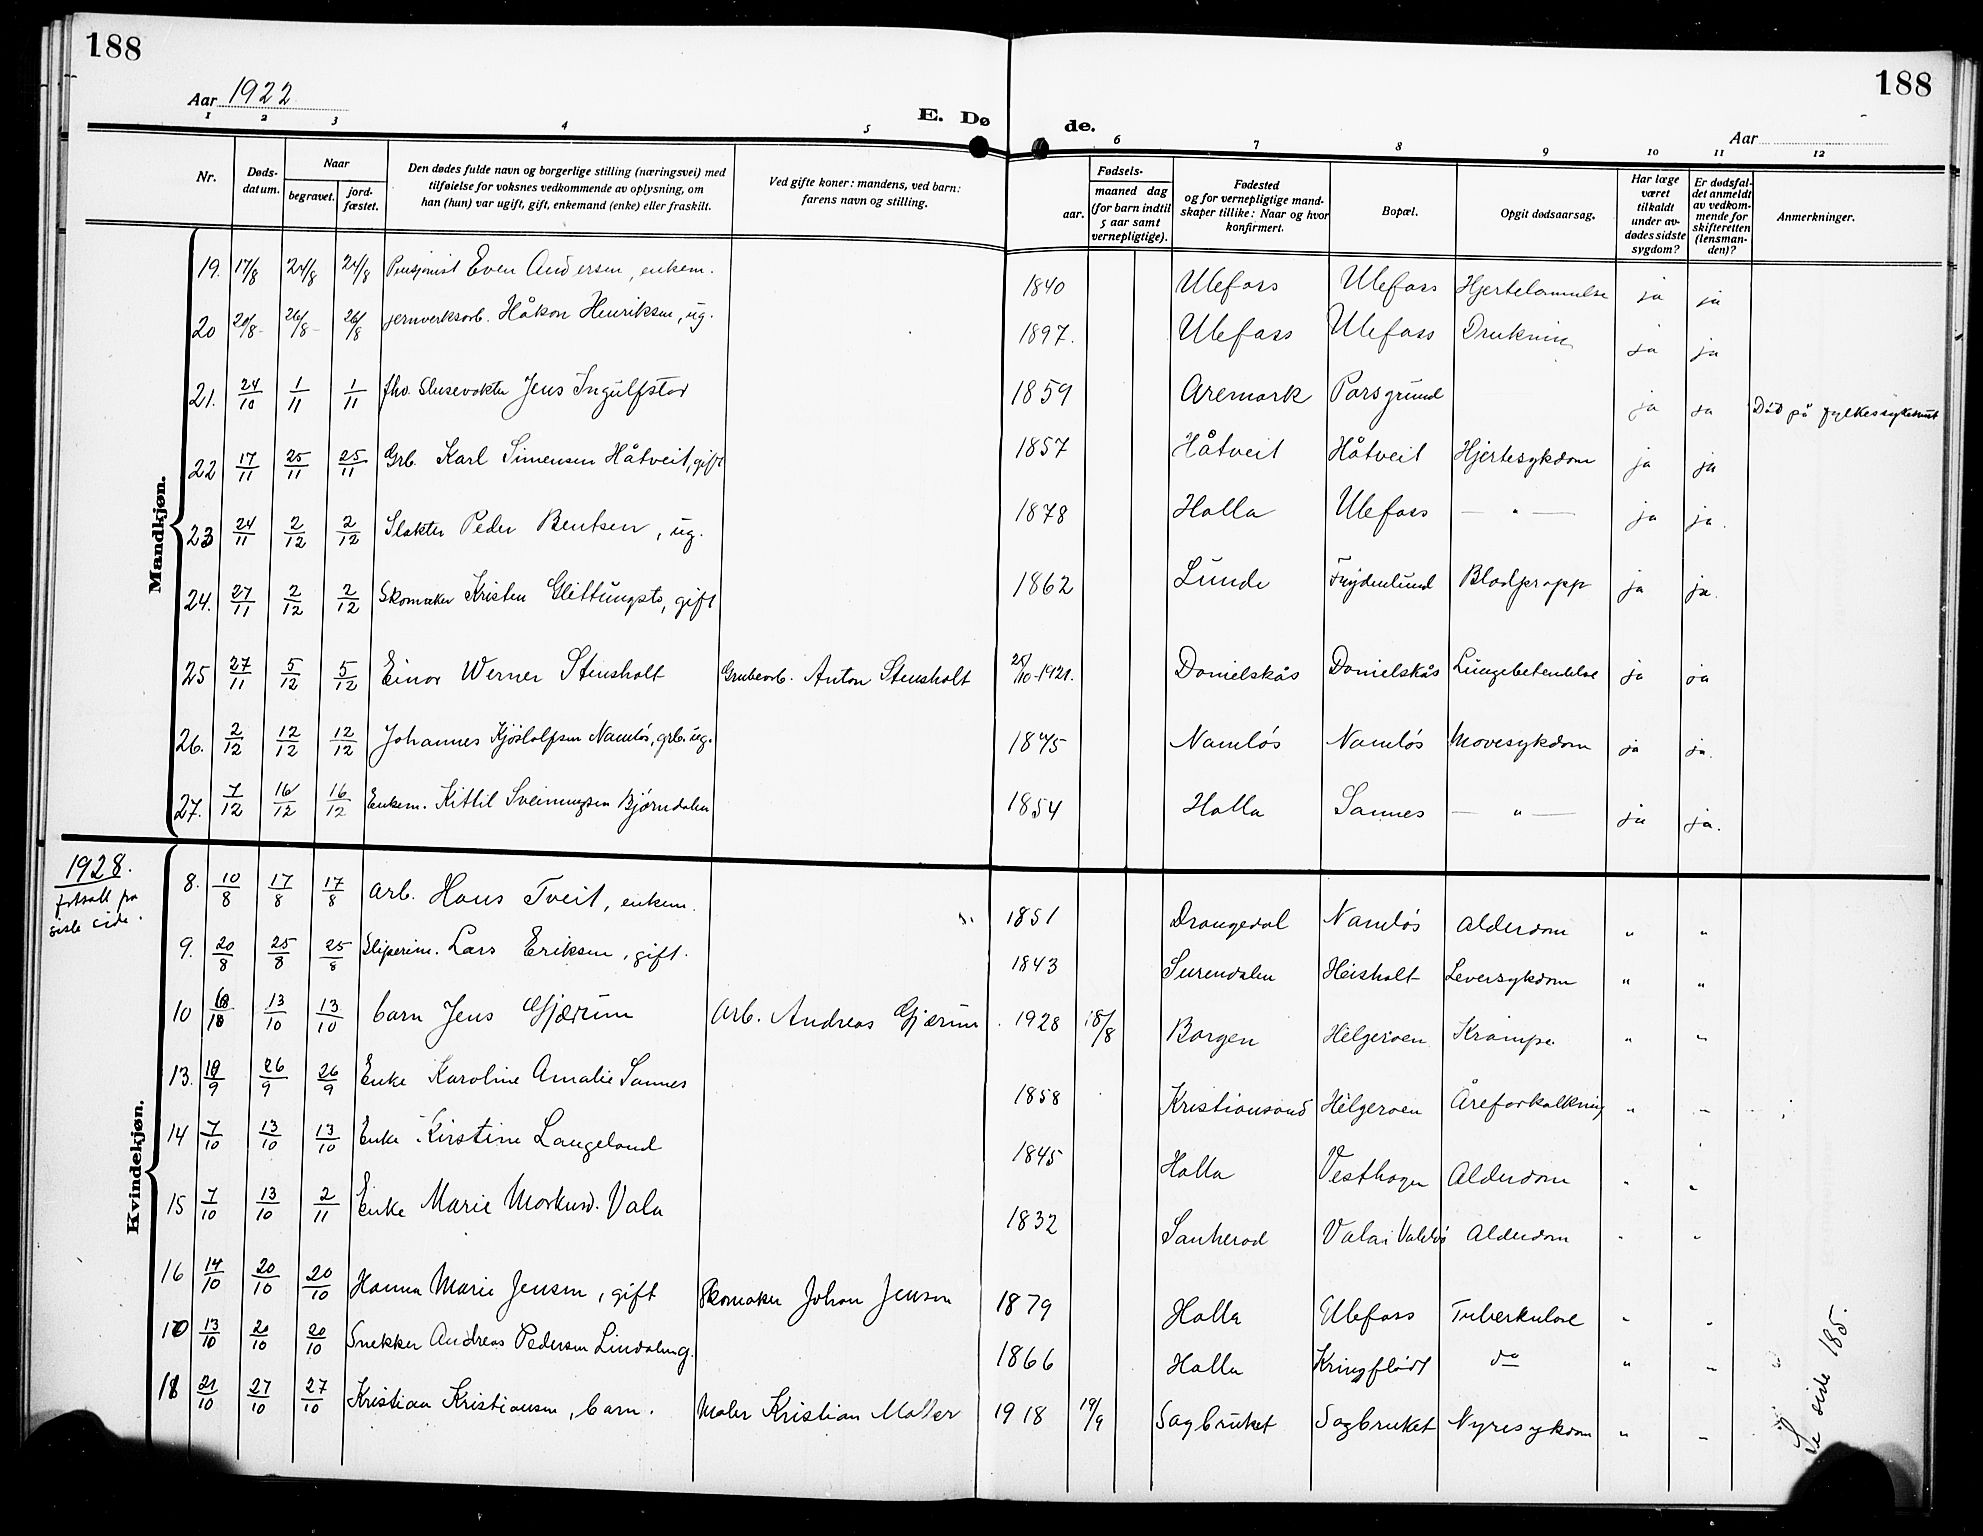 188
188
Aar 1922
E. Døde.
Aar
1 2 3 4 5 6 7 8 9 10 11 12
Nr.
Døds-
datum.
Naar
begravet.
jord-
fæstet.
Den dødes fulde navn og borgerlige stilling (næringsvei) med
tilføielse for voksnes vedkommende av oplysning, om
han (hun) var ugift, gift, enkemand (enke) eller fraskilt.
Ved gifte koner: mandens, ved barn:
farens navn og stilling.
Fødsels-
aar.
maaned dag
(for barn indtil
5 aar samt
vernepligtige).
Fødested
og for vernepligtige mand-
skaper tillike: Naar og hvor
konfirmert.
Bopæl.
Opgit dødsaarsag.
Har læge
været
tilkaldt
under av-
dødes sidste
sygdom?
Er dødsfal-
det anmeldt
av vedkom-
mende for
skifteretten
(lensman-
den)?
Anmerkninger.
Mandkjøn.
19. 17/8 24/8 24/8 Pensjonist Even Andersen, enkem. 1840 Ulefoss Ulefoss Hjertelammelse ja ja
20 20/8 26/8 26/8 jernverksarb. Håkon Henriksen, ug. 1897. Ulefoss Ulefoss Drukning ja ja
21. 24/10 1/11 1/11 fhv. Slusevokter Jens Ingulfstad 1859 Aremark Porsgrund ja ja Død på fylkessykehust
22 17/11 25/11 25/11 Grb. Karl Simensen Håtveit, gift 1857 Håtveit Håtveit Hjertesykdom ja ja
23 24/11 2/12 2/12 Slakter Peder Bentsen, ug. 1878 Holla Ulefoss — " — ja ja.
24. 27/11 2/12 2/12 Skomaker Kristen, gift 1862 Lunde Frydenlund Blodpropp ja ja.
25 27/11 5/12 5/12 Einar Werner Stensholt Grubearb. Anton Stensholt 25/10-1921. Danielskås Danielskås Lungebetendelse ja ja
26. 2/12 12/12 12/12 Johannes Kjøstolfsen Namløs, grb. ug. 1845 Namløs Namløs Mavesykdom ja ja.
27. 7/12 16/12 16/12 Enkem. Kittil Sveinungsen Bjørndalen 1854 Holla Sannes — " — ja ja.
1928.
fortsatt fra
siste side.
Kvindekjøn.
8. 10/8 17/8 17/8 Arb. Hans Tveit, enkem. 1851 Drangedal Namløs Alderdom " "
9. 20/8 25/8 25/8 Sliperim. Lars Eriksen, gift. 1843 Surendalen Heisholt Leversykdom " "
10 13/10 13/10 barn Jens Gjærum Arb. Andreas Gjærum. 1928 18/8 Borgen Helgeroen Krampe " "
13. 19/9 26/9 26/9 Enke Karoline Amalie Sannes 1858 Kristiansand Helgeroen Åreforkalkning " "
14 7/10 13/10 13/10 Enke Kirstine Langeland 1845 Holla Vesthagen Alderdom " "
15 7/10 13/10 2/11 Enke Marie Markusd. Vala 1832 Sauherad Vala i Valebø Alderdom " "
16 14/10 20/10 20/10 Hanna Marie Jensen, gift Skomaker Johan Jensen 1879 Holla Ulefoss Tuberkulose " "
13/10 20/10 20/10 Snekker Andreas Pedersen Lindalen g. 1866 Holla Kringflødt do " "
18 21/10 27/10 27/10 Kristian Kristiansen, barn. Maler Kristian Møller 1918 19/9 Sagbruket Sagbruket Nyresykdom " "
Se side 185.